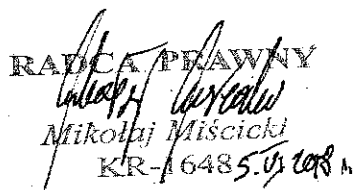 RADCA PRAWNY
Mikołaj Miścicki
KR-1648 5.VI 2018 r.